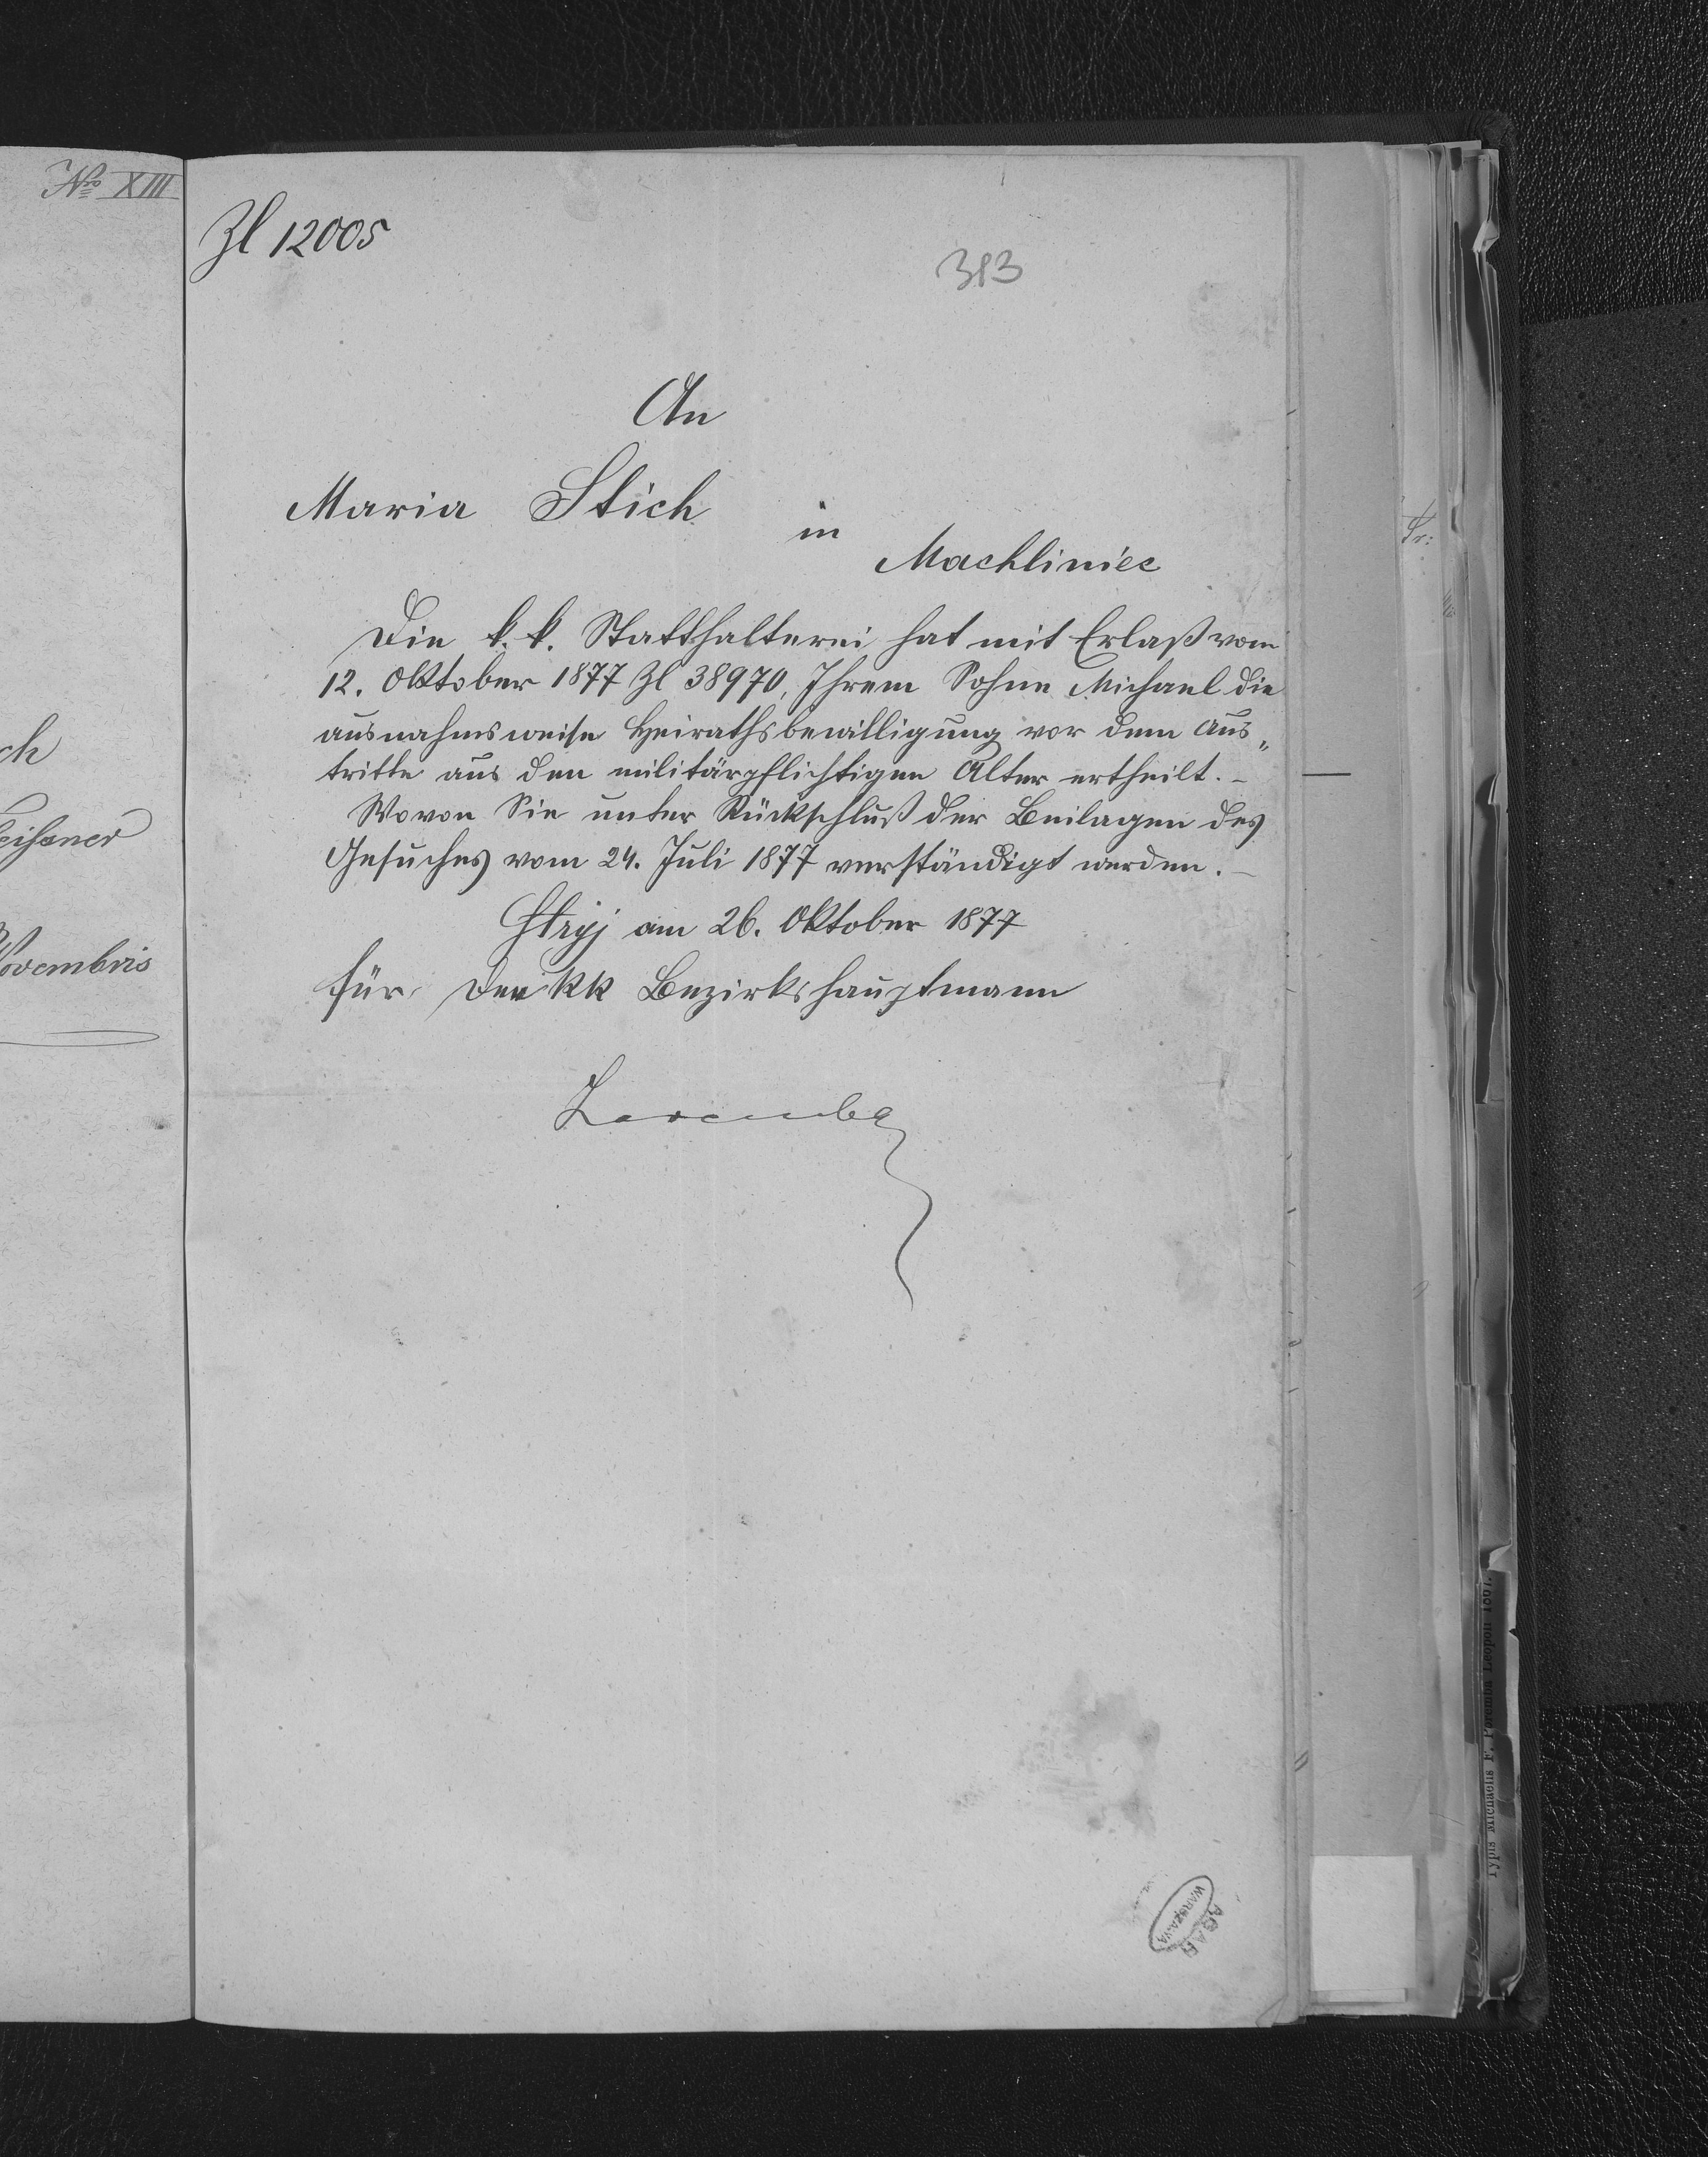 Nro XIII
Zl 12005
313
An
Maria Stich
in
Machliniec
Die k. k. Statthalterei hat mit Erlaß vom
12. Oktober 1877 Zl 38970, Ihrem Sohne Michael die
ausnahmsweise Heirathsbewilligung vor dem Aus„
tritte aus den militärpflichtigen Alter ertheilt. –
Wovon Sie unter Rückschluß der Beilagen des
Gesuches vom 24. Juli 1877 verständigt werden. –
Stryj am 26. Oktober 1877
für den kk Bezirkshauptmann
ch
Novembris
AGAD
WARSZAWA
Typis Michaelis F. Poremba Leopoli 1867.